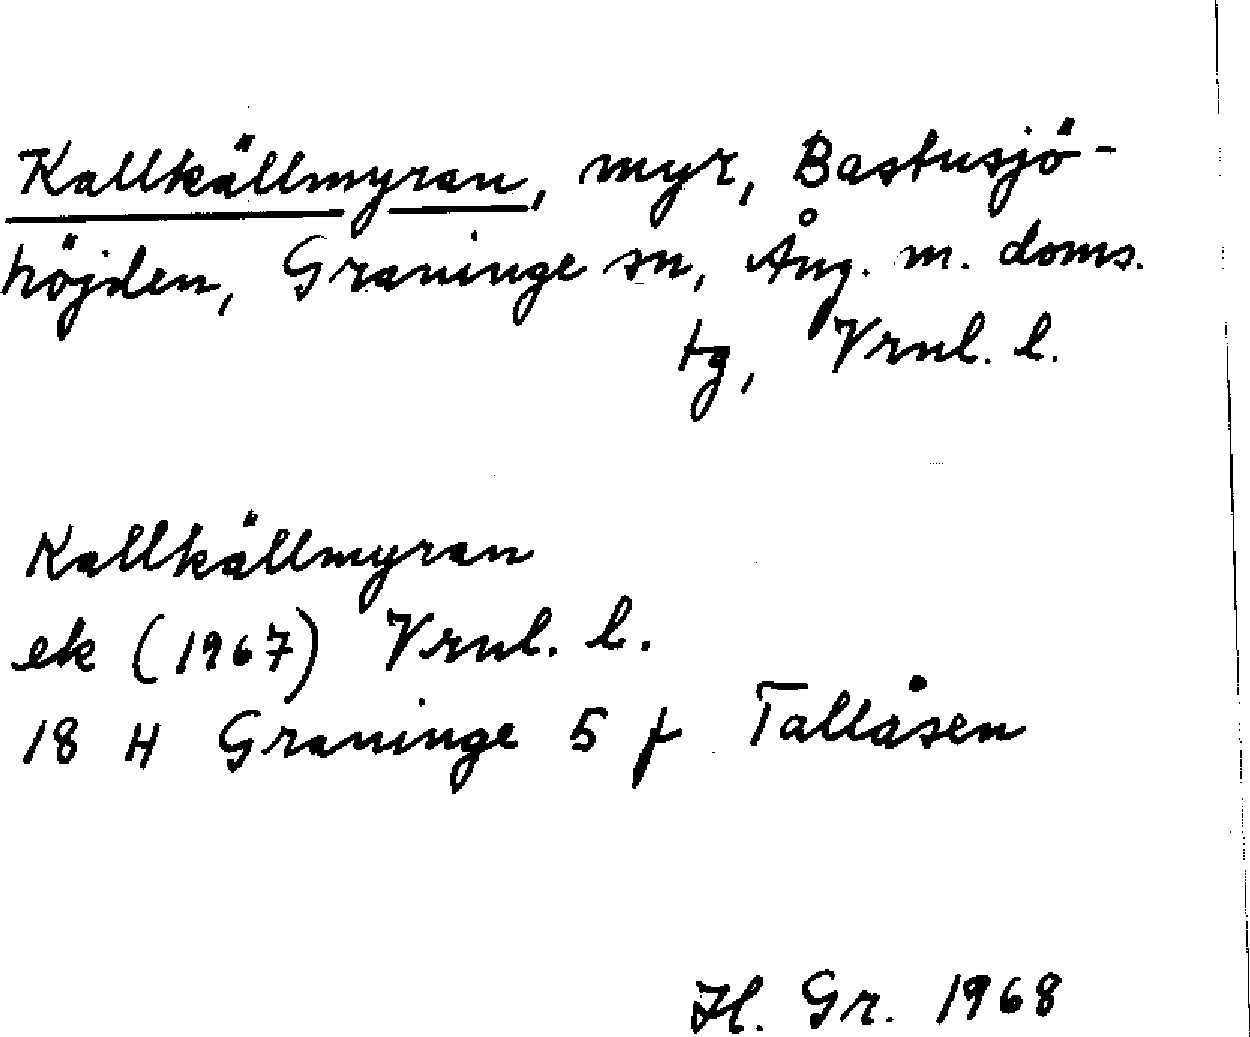 Kallkällmyran, myr, Bastusjö-
höjden, Graninge sn, Ång. m. doms.
tg, Vrnl. l.
Kallkällmyran
ek (1967) Vrnl. l.
18 H Graninge 5 f Tallåsen
H. Gr. 1968